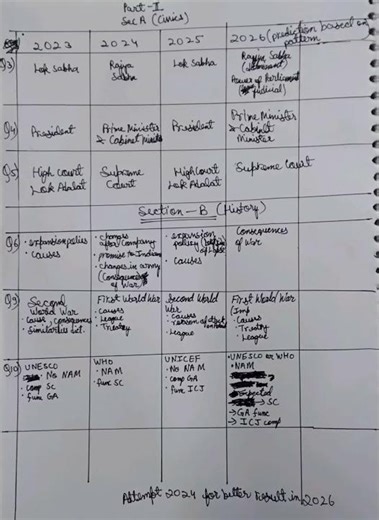 Part-I
Sec A (Civics)
2023 2024 2025 2026 (prediction based on pattern)
Q3) Lok Sabha Rajya Sabha Lok Sabha Rajya Sabha
Power of Parliament
(judicial)
Q4) President Prime Minister & Cabinet President Prime Minister & Cabinet Minister
Q5) High Court Lok Adalat Supreme Court High Court Lok Adalat Supreme Court
Section-B (History)
Q6)
• expansion policies
• causes
• changes after Company
• promise to Indians
• changes in army
Consequences of War
• expansion policy
• causes
Consequences of War
Q9)
Second World War
• cause, consequences
• similarities
First World War
• causes
• League
• Treaty
Second World War
• causes
• reason of
• League
First World War
(Imp)
• Causes
• Treaty
• League
Q10)
UNESCO
• No NAM
• comp SC
• func GA
WHO
• NAM
• func SC
UNICEF
• No NAM
• comp GA
• func ICJ
• UNESCO or WHO
• NAM
→ SC
→ GA func
→ ICJ comp
Attempt 2024 for better result in 2026